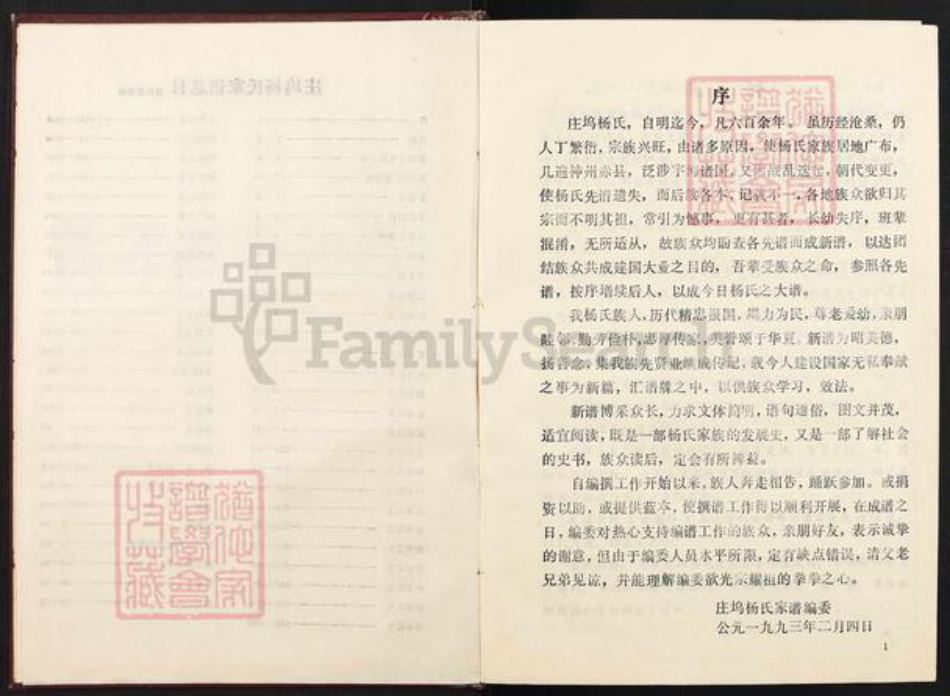 庄坞杨氏家谱总目
序
庄坞杨氏，自明迄今，凡六百余年。虽历经沧桑，仍
人丁繁衍，宗族兴旺，由诸多原因，使杨氏家族居地广布，
几遍神州赤县，泛涉宇内诸国，又因战乱迭起，朝代变更，
使杨氏先谱遗失，而后族各本，记载不一，各地族众欲归其
宗而不明其祖，常引为憾事，更有甚者，长幼失序，班辈
混淆，无所适从，故族众均勖查各先谱而成新谱，以达团
结族众共成建国大业之目的，吾辈受族众之命，参照各先
谱，按序增续后人，以成今日杨氏之大谱。
我杨氏族人，历代精忠报国，竭力为民，尊老爱幼，
睦邻，勤劳俭朴，忠厚传家，美誉颂于华夏，新谱为昭美德，
扬善念，集我族先贤业绩成传记，载今人建设国家无私奉献
之事为新篇，汇谱牒之中，以供族众学习，效法。
新谱博采众长，力求文体简明，语句通俗，图文并茂，
适宜阅读，既是一部杨氏家族的发展史，又是一部了解社会
的史书，族众读后，定会有所裨益。
自编撰工作开始以来，族人奔走相告，踊跃参加。或捐
资以助，或提供蓝本，使撰谱工作得以顺利开展，在成谱之
日，编委对热心支持编谱工作的族众，亲朋好友，表示诚挚
的谢意，但由于编委人员水平所限，定有缺点错误，请父老
兄弟见谅，并能理解编委欲光宗耀祖的拳拳之心。
庄坞杨氏家谱编委
公元一九九三年二月四日
1
FamilySearch